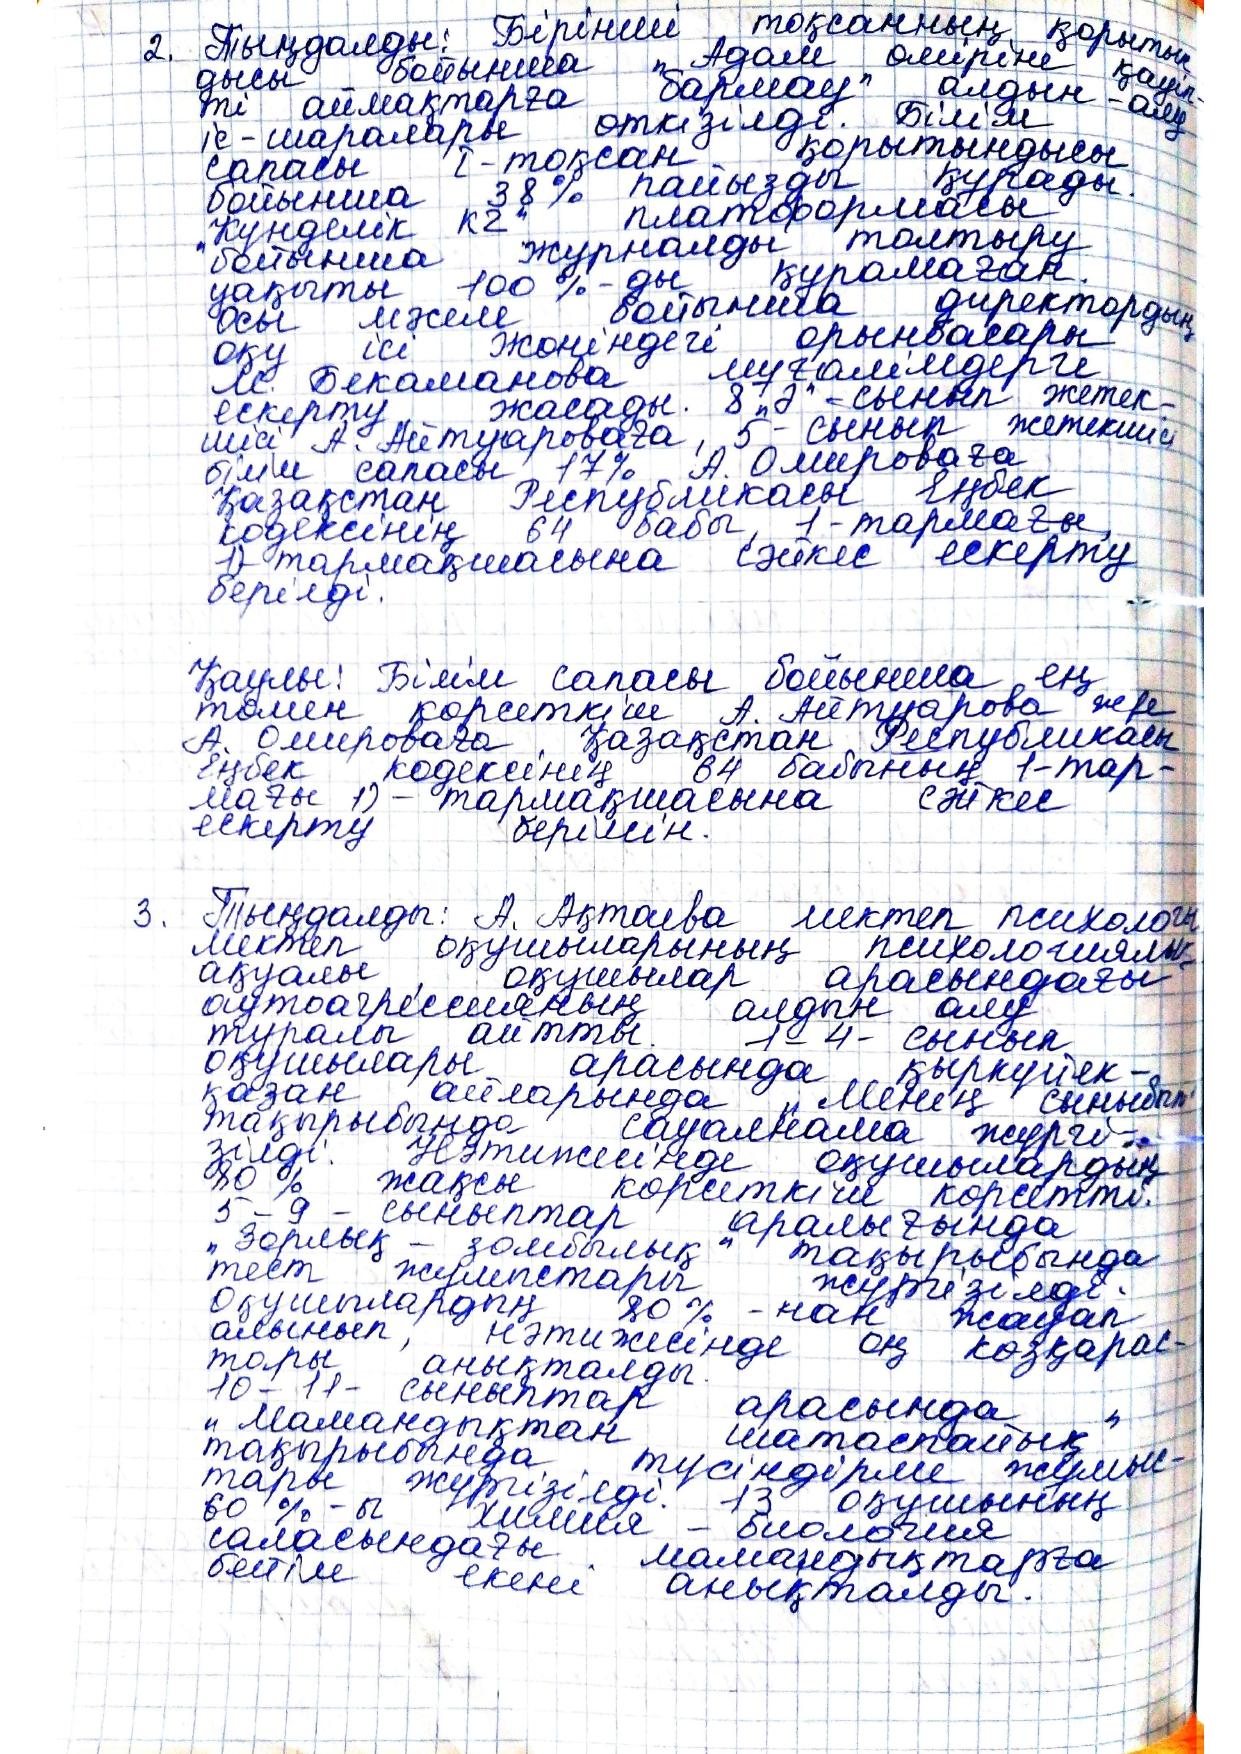 2. Тыңдалды: Бірінші тоқсанның қорытын
дысы бойынша „Адам өміріне қауіп-
ті аймақтарға бармау" алдын-алу
іс-шаралары өткізілді. Білім
сапасы I-тоқсан қорытындысы
бойынша 38% пайызды құрады.
„Күнделік KZ" платформасы
бойынша журналды толтыру
уақыты 100%-ды құрамаған.
Осы мәселе бойынша директордың
оқу ісі жөніндегі орынбасары
М. Бекаманова мұғалімдерге
ескерту жасады. 8 „Ә"-сынып жетек-
шісі А. Айтуароваға, 5-сынып жетекшісі
білім сапасы 17% А. Омироваға
Қазақстан Республикасы Еңбек
кодексінің 64 бабы, 1-тармағы,
1) тармақшасына сәйкес ескерту
берілді.
Қаулы: Білім сапасы бойынша ең
төмен көрсеткіш А. Айтуарова және
А. Омироваға Қазақстан Республикасы
Еңбек кодексінің 64 бабының 1-тар-
мағы 1)-тармақшасына сәйкес
ескерту берілсін.
3. Тыңдалды: А. Ақтаева мектеп психологы
мектеп оқушыларының психологиялық
ақуалы, оқушылар арасындағы
аутоагрессияның алдын алу
туралы айтты. 1-4-сынып
оқушылары арасында қыркүйек-
қазан айларында „Менің сыныбым"
тақырыбында сауалнама жүргі-
зілді. Нәтижесінде оқушылардың
80% жақсы көрсеткіш көрсетті.
5-9-сыныптар аралығында
„Зорлық-зомбылық" тақырыбында
тест жұмыстары жүргізілді.
Оқушылардың 80%-нан жауап
алынып, нәтижесінде оң көзқарас-
тары анықталды.
10-11-сыныптар арасында
„Мамандықтан шатаспайық"
тақырыбында түсіндірме жұмыс-
тары жүргізілді. 13 оқушының
60%-ы химия-биология
саласындағы мамандықтарға
бейім екені анықталды.